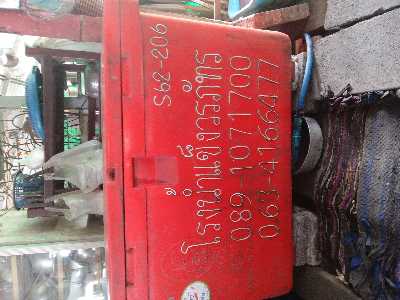 S62-206
โรงน้ำแข็งวรภัทร
089-1071700
063-4166477